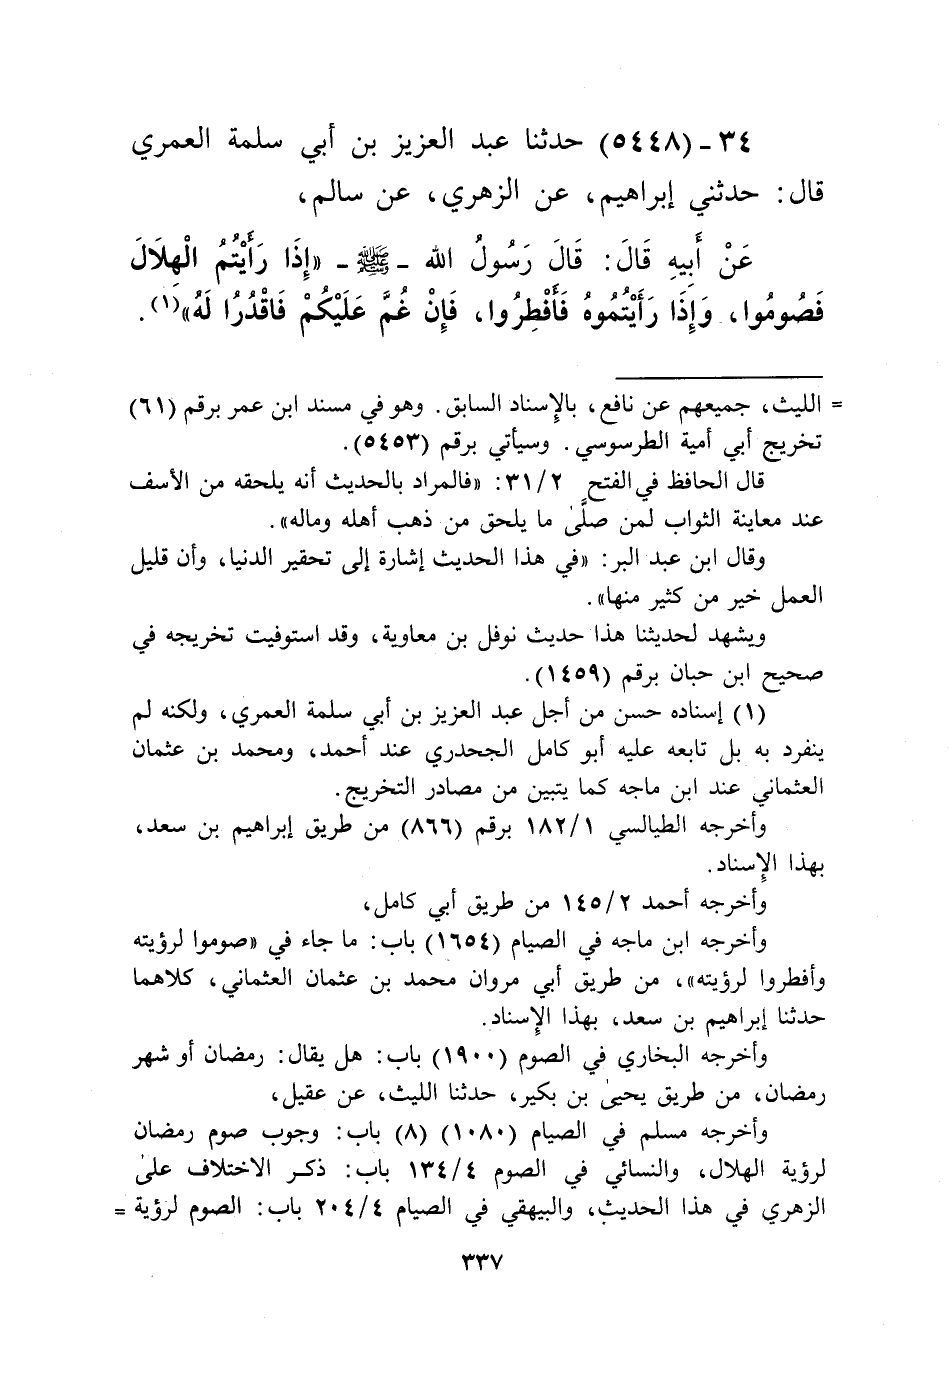 ٣٤ - (٥٤٤٨) حدثنا عبد العزيز بن أبي سلمة العمري
قال: حدثني إبراهيم، عن الزهري، عن سالم،
عَنْ أَبِيهِ قَالَ: قَالَ رَسُولُ الله - ﷺ - «إِذَا رَأَيْتُمُ الْهِلَالَ
فَصُومُوا، وَإِذَا رَأَيْتُمُوهُ فَأَفْطِرُوا، فَإِنْ غُمَّ عَلَيْكُمْ فَاقْدُرُا لَهُ»(١).
= الليث، جميعهم عن نافع، بالإسناد السابق. وهو في مسند ابن عمر برقم (٦١)
تخريج أبي أمية الطرسوسي. وسيأتي برقم (٥٤٥٣).
قال الحافظ في الفتح ٣١/٢: «فالمراد بالحديث أنه يلحقه من الأسف
عند معاينة الثواب لمن صلَّىٰ ما يلحق من ذهب أهله وماله».
وقال ابن عبد البر: «في هذا الحديث إشارة إلى تحقير الدنيا، وأن قليل
العمل خير من كثير منها».
ويشهد لحديثنا هذا حديث نوفل بن معاوية، وقد استوفيت تخريجه في
صحيح ابن حبان برقم (١٤٥٩).
(١) إسناده حسن من أجل عبد العزيز بن أبي سلمة العمري، ولكنه لم
ينفرد به بل تابعه عليه أبو كامل الجحدري عند أحمد، ومحمد بن عثمان
العثماني عند ابن ماجه كما يتبين من مصادر التخريج.
وأخرجه الطيالسي ١٨٢/١ برقم (٨٦٦) من طريق إبراهيم بن سعد،
بهذا الإسناد.
وأخرجه أحمد ١٤٥/٢ من طريق أبي كامل،
وأخرجه ابن ماجه في الصيام (١٦٥٤) باب: ما جاء في «صوموا لرؤيته
وأفطروا لرؤيته»، من طريق أبي مروان محمد بن عثمان العثماني، كلاهما
حدثنا إبراهيم بن سعد، بهذا الإسناد.
وأخرجه البخاري في الصوم (١٩٠٠) باب: هل يقال: رمضان أو شهر
رمضان، من طريق يحيىٰ بن بكير، حدثنا الليث، عن عقيل،
وأخرجه مسلم في الصيام (١٠٨٠) (٨) باب: وجوب صوم رمضان
لرؤية الهلال، والنسائي في الصوم ١٣٤/٤ باب: ذكر الاختلاف علىٰ
الزهري في هذا الحديث، والبيهقي في الصيام ٢٠٤/٤ باب: الصوم لرؤية =
٣٣٧